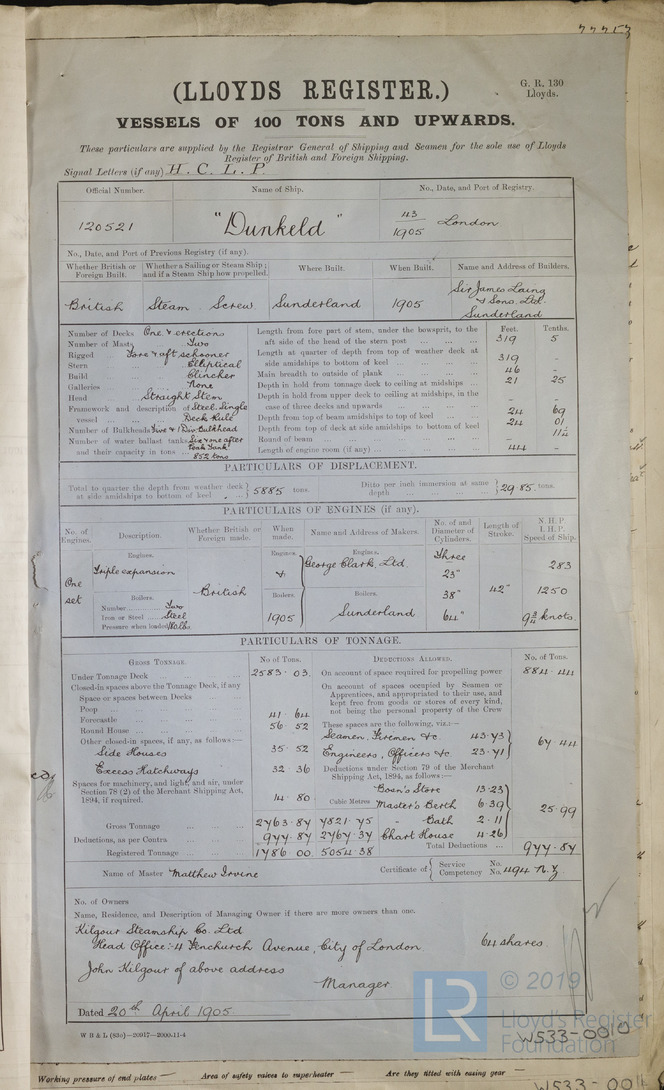 (LLOYDS REGISTER.)
G. R. 130
Lloyds.
VESSELS OF 100 TONS AND UPWARDS.
These particulars are supplied by the Registrar General of Shipping and Seamen for the sole use of Lloyds
Register of British and Foreign Shipping.
Signal Letters (if any) H. C. L. P.
Official Number. Name of Ship. No., Date, and Port of Registry.
120521 "Dunkeld" 43/1905 London
No., Date, and Port of Previous Registry (if any).
Whether British or Foreign Built. Whether a Sailing or Steam Ship; and if a Steam Ship how propelled. Where Built. When Built. Name and Address of Builders.
British Steam Screw. Sunderland 1905 Sir James Laing & Sons. Ltd. Sunderland
Number of Decks One & erections
Number of Masts Two
Rigged Fore & aft schooner
Stern Elliptical
Build Clincher
Galleries None
Head Straight Stem
Framework and description of vessel Steel. Single Deck Rule
Number of Bulkheads Five & 1 Div. Bulkhead
Number of water ballast tanks, and their capacity in tons Six & one after Peak Tank 852 tons
Feet. Tenths.
Length from fore part of stem, under the bowsprit, to the aft side of the head of the stern post 319 5
Length at quarter of depth from top of weather deck at side amidships to bottom of keel 319 -
Main breadth to outside of plank 46 -
Depth in hold from tonnage deck to ceiling at midships 21 25
Depth in hold from upper deck to ceiling at midships, in the case of three decks and upwards - -
Depth from top of beam amidships to top of keel 24 69
Depth from top of deck at side amidships to bottom of keel 24 01
Round of beam - 11½
Length of engine room (if any) 44 -
PARTICULARS OF DISPLACEMENT.
Total to quarter the depth from weather deck at side amidships to bottom of keel 5885 tons. Ditto per inch immersion at same depth 29.85. tons.
PARTICULARS OF ENGINES (if any).
No. of Engines. Description. Whether British or Foreign made. When made. Name and Address of Makers. No. of and Diameter of Cylinders. Length of Stroke. N. H. P. I. H. P. Speed of Ship.
Engines. Engines. Engines.
One set Triple expansion British & George Clark, Ltd. Three 23" 42" 283
Boilers. Boilers. Boilers. 38" 1250
Number Two
Iron or Steel Steel 1905 Sunderland 64" 9¾ knots.
Pressure when loaded 180 lbs.
PARTICULARS OF TONNAGE.
GROSS TONNAGE. No of Tons. DEDUCTIONS ALLOWED. No. of Tons.
Under Tonnage Deck 2583. 03.
Closed-in spaces above the Tonnage Deck, if any
Space or spaces between Decks
Poop 41. 64
Forecastle 56 52
Round House
Other closed-in spaces, if any, as follows:—
Side Houses 35. 52
Excess Hatchways 32. 36
Spaces for machinery, and light, and air, under Section 78 (2) of the Merchant Shipping Act, 1894, if required. 14. 80
Gross Tonnage 2763.87 7821.75
Deductions, as per Contra 977.87 2767.37
Registered Tonnage 1786 00 5054.38
On account of space required for propelling power 884.44
On account of spaces occupied by Seamen or Apprentices, and appropriated to their use, and kept free from goods or stores of every kind, not being the personal property of the Crew
These spaces are the following, viz.:—
Seamen, Firemen &c 43.73
Engineers, Officers &c. 23.71 67 44
Deductions under Section 79 of the Merchant Shipping Act, 1894, as follows:—
Cubic Metres
Boan's Store 13.23
Master's Berth 6.39
" Bath 2.11
Chart House 4.26 25.99
Total Deductions 977.87
Name of Master Matthew Irvine Certificate of Service No. Competency No. 494 N.Z.
No. of Owners
Name, Residence, and Description of Managing Owner if there are more owners than one.
Kilgour Steamship Co. Ltd
Head Office:- 4 Fenchurch Avenue, City of London. 64 shares.
John Kilgour of above address
Manager.
Dated 20th April 1905.
W B & L (83o)—20017—2000-11-4
LR
© 2019
Lloyd's Register
Foundation
W533-0010
Working pressure of end plates — Area of safety valves to superheater — Are they fitted with easing gear —
W533-001